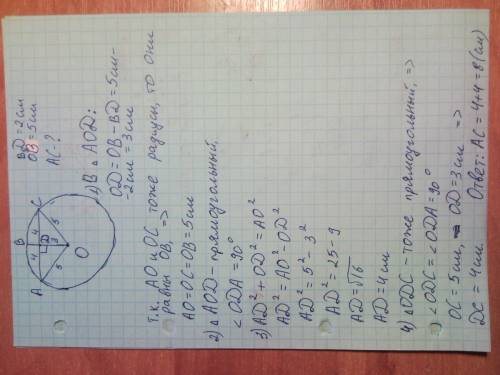 BD = 2 см
OB = 5 см
AC - ?
A
B
C
4
4
D
5
3
5
O
1) В △ AOD:
OD = OB - BD = 5 см -
- 2 см = 3 см
т.к. AO и OC тоже радиусы, то они
равны OB, =>
AO = OC = OB = 5 см
2) △ AOD - прямоугольный,
∠ ODA = 90°
3) AD² + OD² = AO²
AD² = AO² - OD²
AD² = 5² - 3²
AD² = 25 - 9
AD = √16
AD = 4 см
4) △ ODC - тоже прямоугольный, =>
∠ ODC = ∠ ODA = 90°
OC = 5 см, OD = 3 см =>
DC = 4 см. Ответ: AC = 4 + 4 = 8 (см)